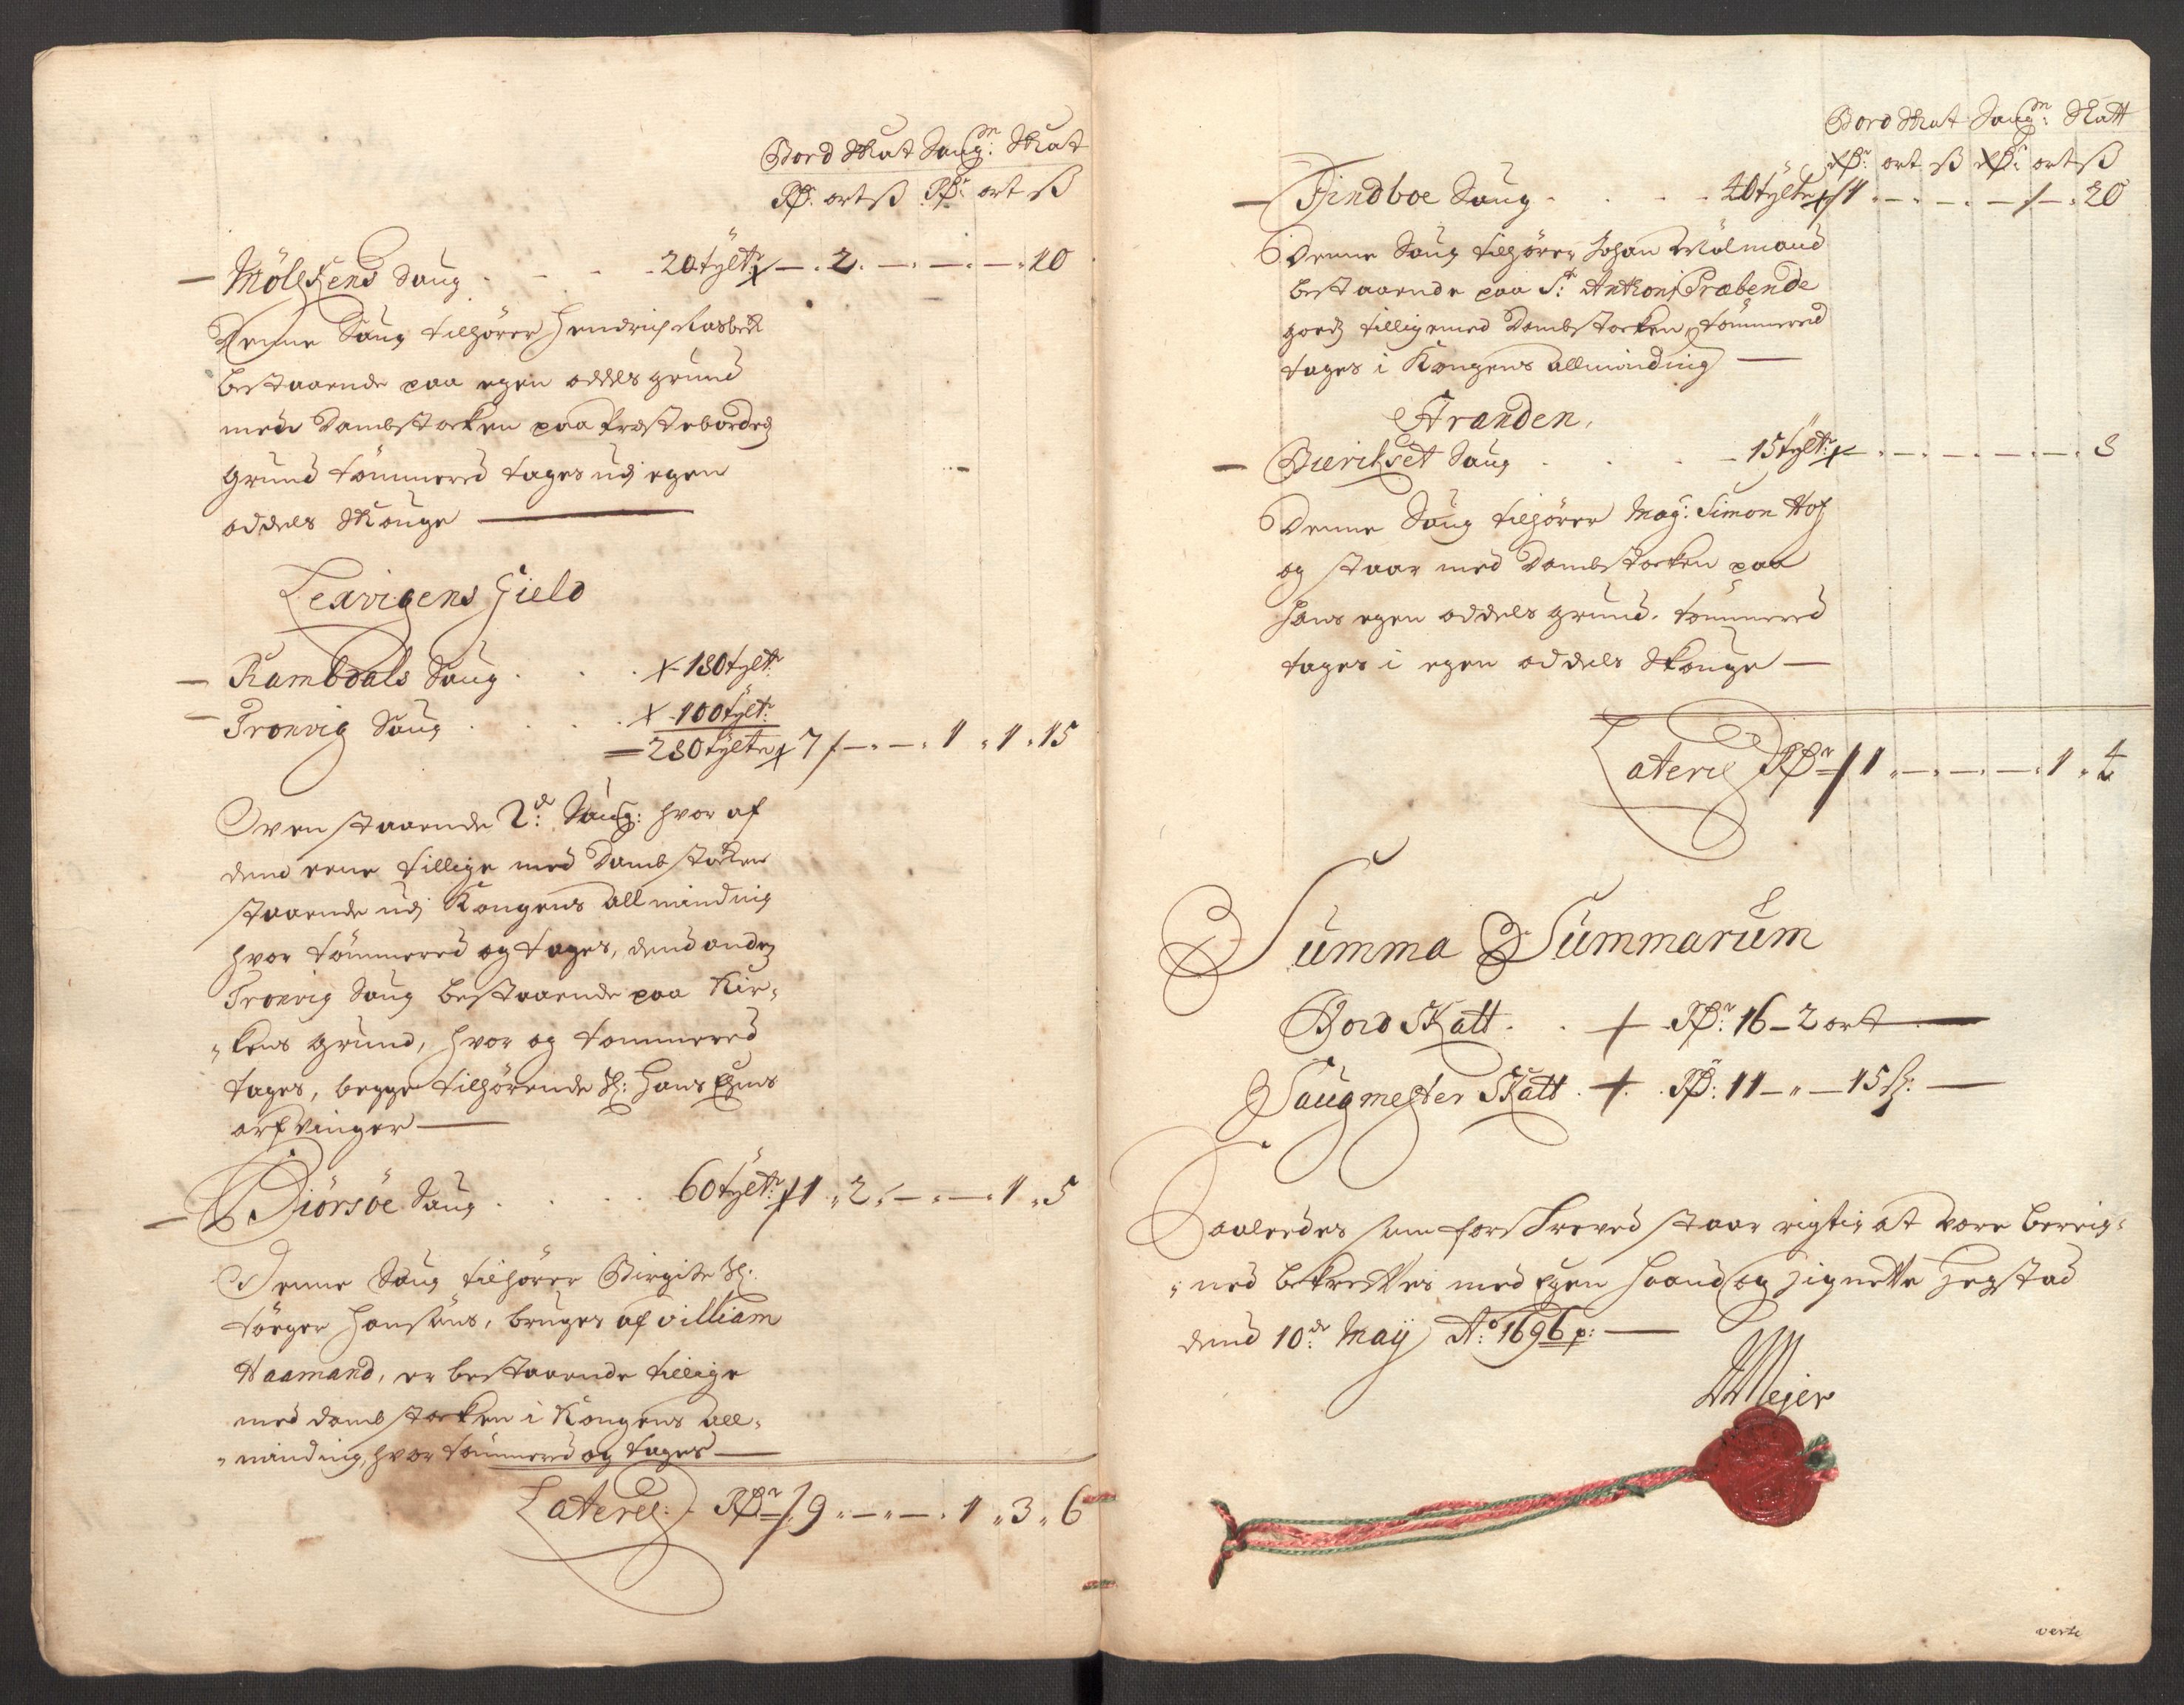 Bord Skat Saugm: Skat
Rdr: ort ß Rdr: ort ß
Mölskens Saug - - - 20 tylt: - . 2 . - . - . - . 10
Denne Saug tilhører Hendrich
bestaaende paa egen oddels grund
med Dambstocken paa Præstebordetz
grund tömmered tages udj egen
oddels Skouge
Lexvigens Gield
Rambdals Saug . . . 180 tylt:
Tronvig Saug . . . 100 tylt:
280 tylter 7 . - . - . 1 . 1 . 15
Ovenstaaende 2de: Saug: hvor af
dend eene tillige med Dambstocken
staaende udj Kongens allminding
hvor tömmered og tages, dend anden
Tronvig Saug bestaaende paa Kir-
kens grund, hvor og tømmered
tages, begge tilhørende Sl: Hans
arfvinger
Diörsöe Saug . . . 60 tylt: 1 . 2 . - . - . 1 . 5
Denne Saug tilhører Birgite Sl:
Törger Hansens, bruges af Villiam
Haamand, er bestaaende tillige
med dambstocken i Kongens all-
minding, hvor tømmered og tages
Lateris: Rdr 9 . - . - . 1 . 3 . 6
Bord Skat Saugm: Skatt
Rdr: ort ß Rdr: ort ß
Findboe Saug . . . 40 tylter 1 . - . - . - . - . 20
Denne Saug tilhører Johan
bestaaende paa St: Anthonj Præbende
godtz tilligemed Dambstocken, tömmered
tages i Kongens allminding
Stranden.
Bierikset Saug . . . 15 tylt: - . - . - . - . - . 8
Denne Saug tilhører Mag: Simon Hof
og staar med Dambstocken paa
hans egen oddels grund. tömmered
tages i egen oddels Skouge
Lateris Rdr 1 . - . - . - . 1 . 4
Summa Summarum
Bord Skatt . . Rdr: 16 - 2 ort
Saugmester Skatt . Rd: 11 - " - 15 ß:
Saaleedes som forskreved staar rigtig at være bereig-
ned bekreftes med Egen haand og Zignette Hegstad
dend 10de Maij Ao: 1696 p:
Mejer
verte